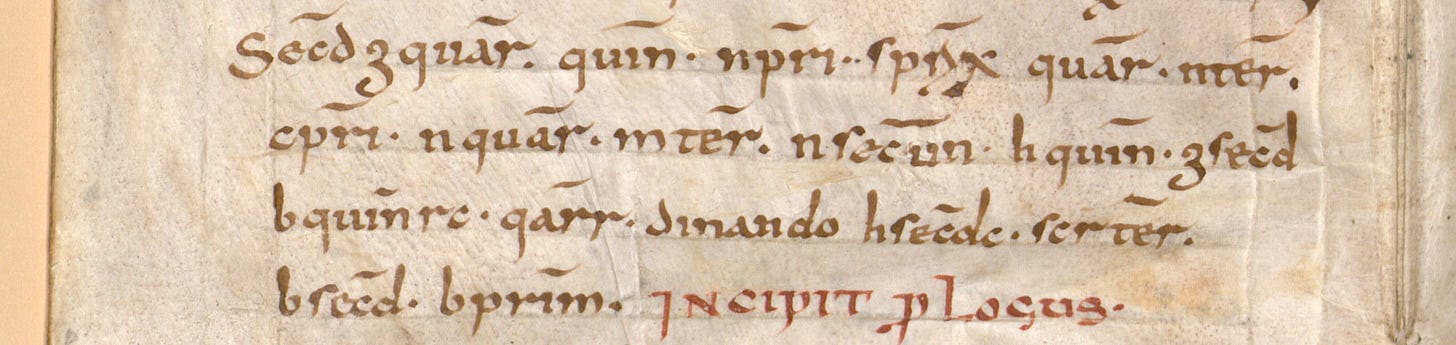 Sec̄dgquār. quīn· np̄ri·· spr̄ix quār· ntēr.
cpr̄i· nquār· mtēr. nsecūn· hquīn· gsec̄d
bquīnrc· qārr· dinando hsec̄dc· scrtēr.
bsec̄d· bprīm. INCIPIT pLogus·